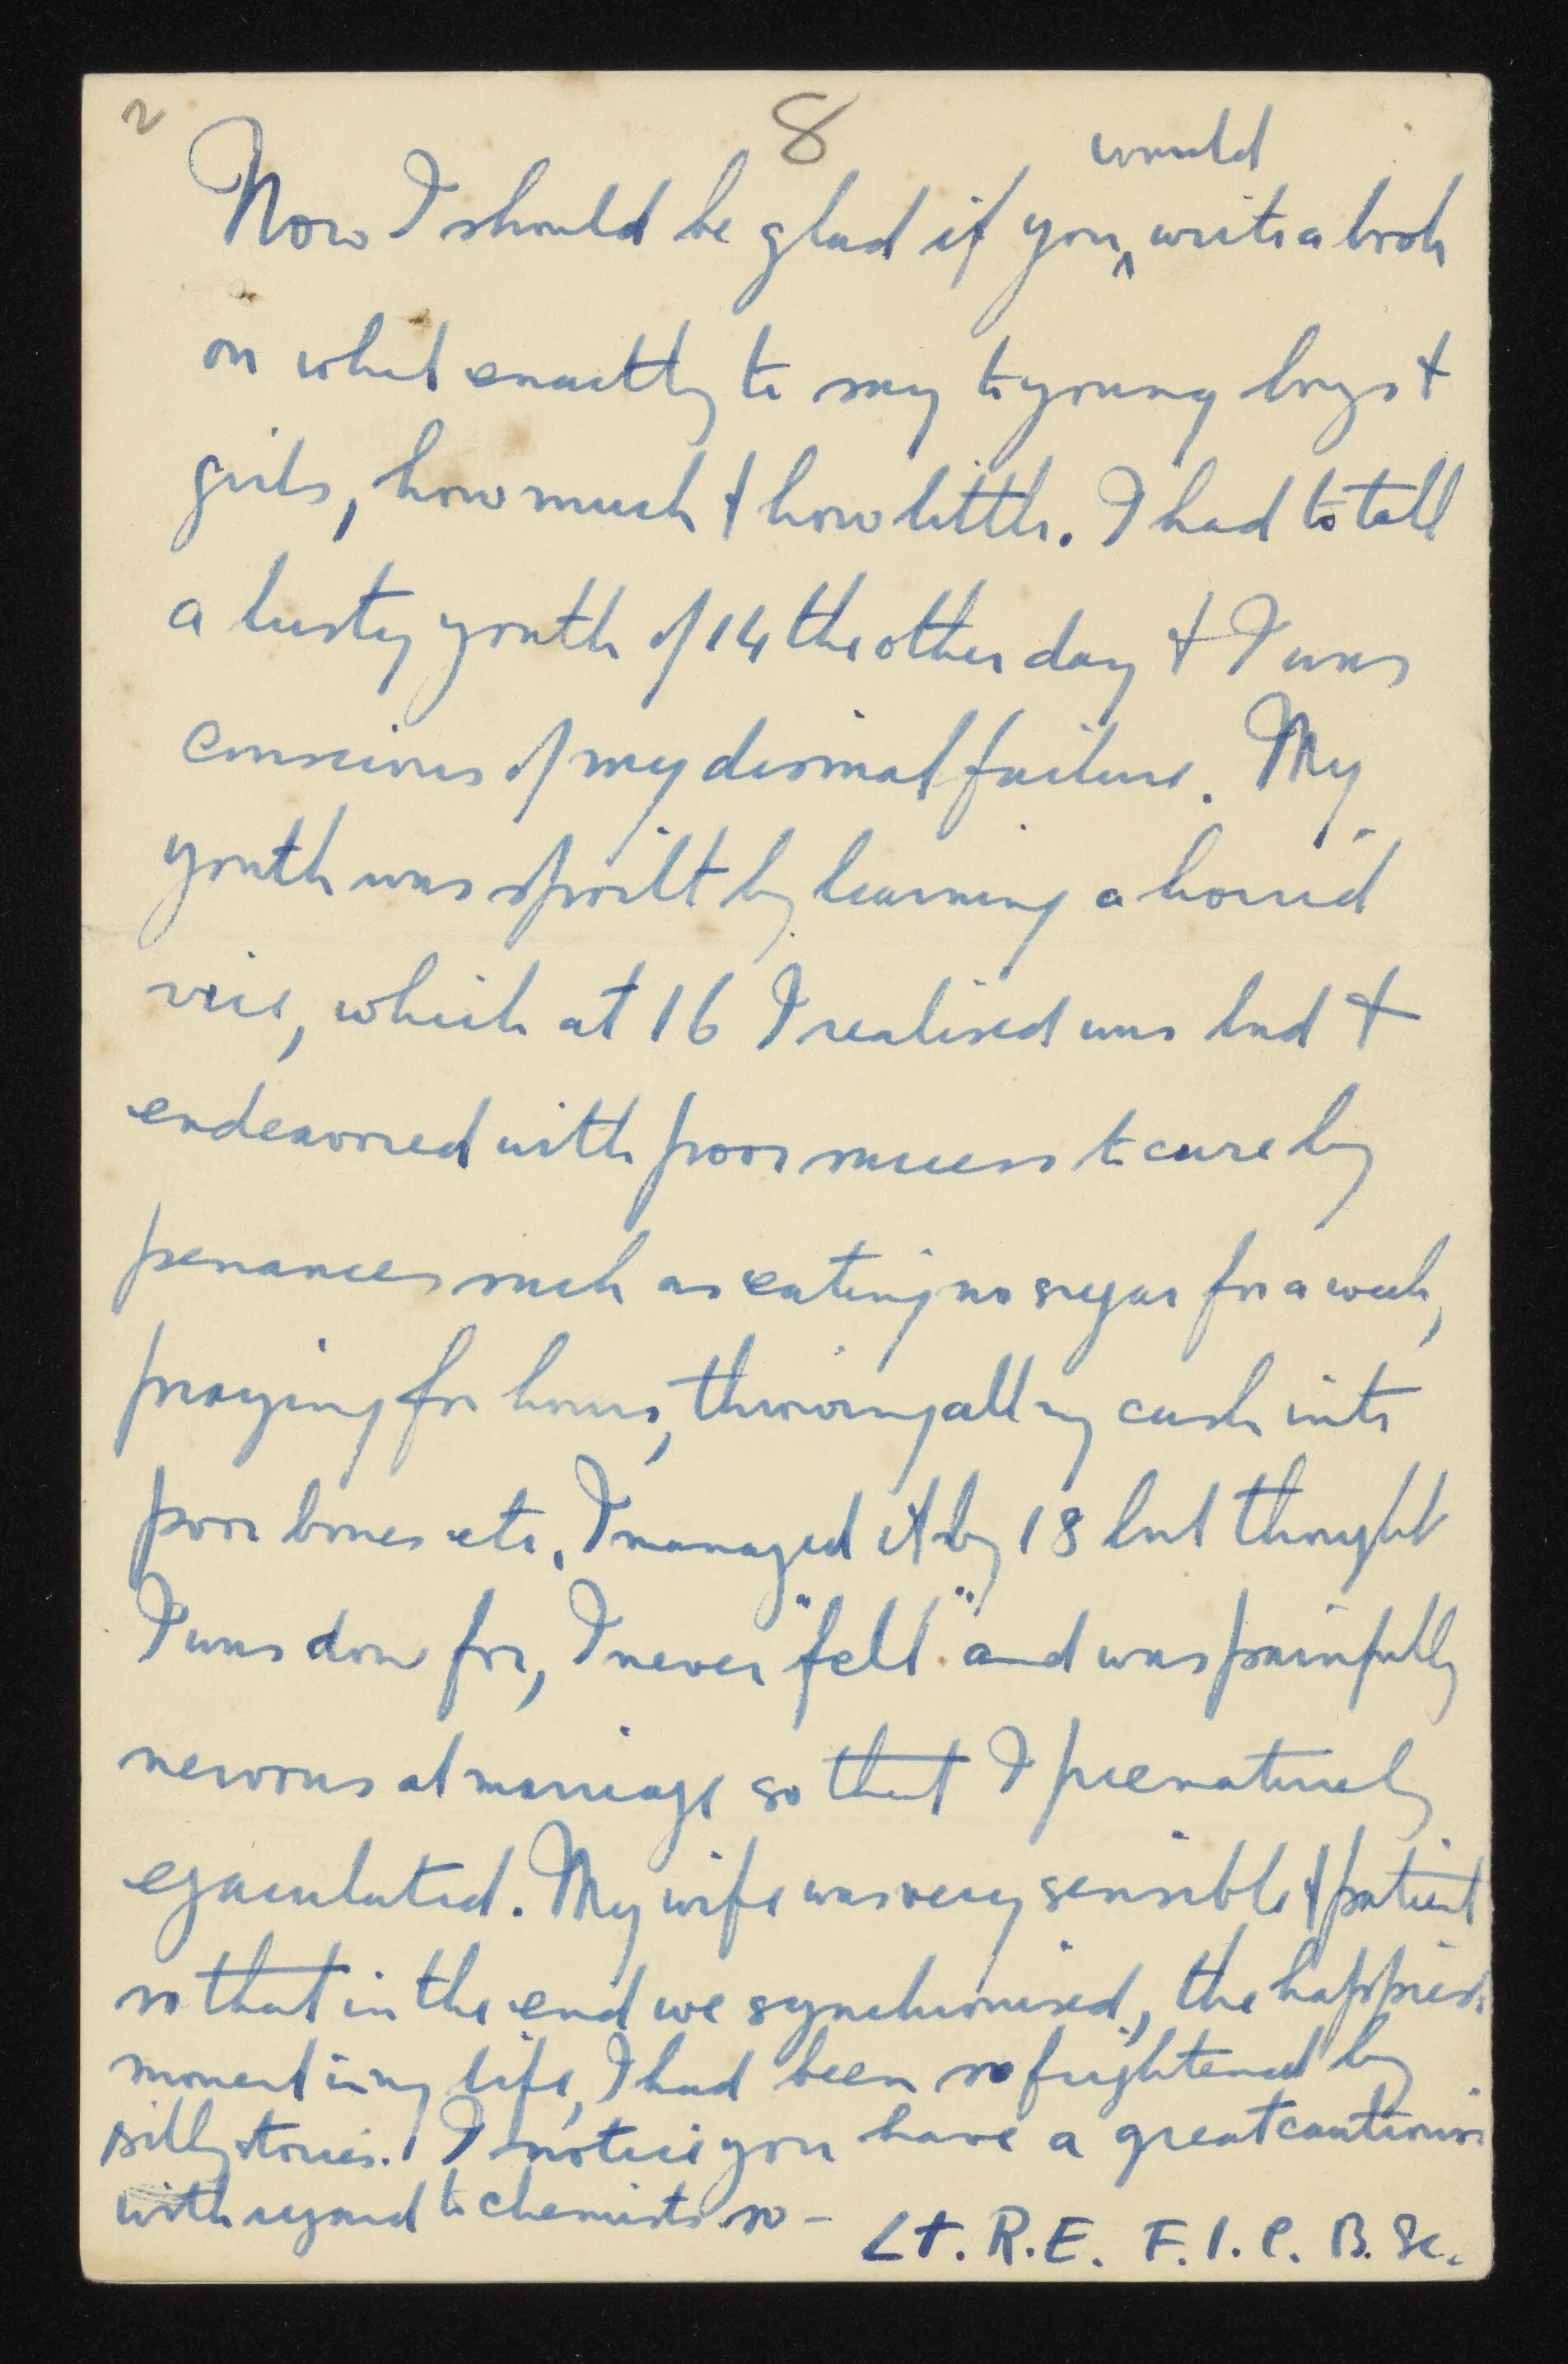 2
8
would
Now I should be glad if you ^ write a book
on what exactly to say to young boys &
girls, how much & how little. I had to tell
a lusty youth of 14 the other day & I was
conscious of my dismal failure. My
youth was spoilt by learning a horrid
vice, which at 16 I realised was bad &
endeavored with poor success to cure by
penances such as eating no sugar for a week,
praying for hours, throwing all my cash into
poor boxes etc. I managed it by 18 but thought
I was done for, I never "fell" and was painfully
nervous at marriage so that I prematurely
ejaculated. My wife was very sensible & patient
so that in the end we synchronised, the happiest
moment in my life, I had been so frightened by
silly stories. I notice you have a great cautiousn
with regard to chemists so - Lt. R.E. F.I.C. B.Sc.